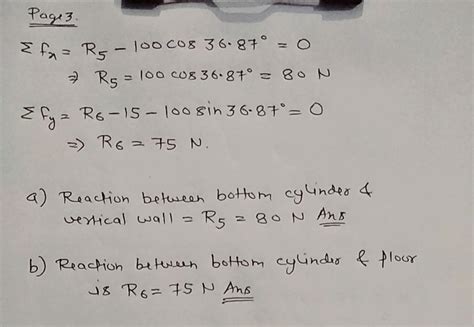 Page 3.
Σfx = R5 - 100 cos 36.87° = 0
⇒ R5 = 100 cos 36.87° = 80 N
Σfy = R6 - 15 - 100 sin 36.87° = 0
⇒ R6 = 75 N.
a) Reaction between bottom cylinder &
vertical wall = R5 = 80 N Ans
b) Reaction between bottom cylinder & floor
is R6 = 75 N Ans